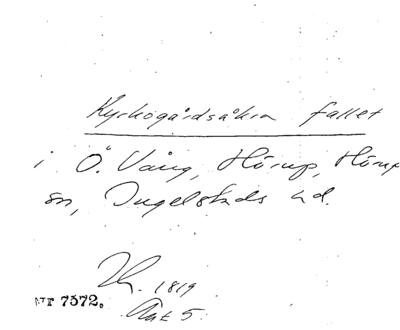 Kyrkogårdsåkra fallet
i Ö. Vång, Hörup, Hörup
sn, Ingelstads hd.
1819
Akt 5.
MT 7572.